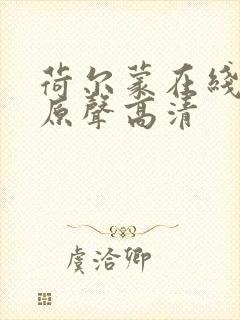 荷尔蒙在綫
原聲高清
虞洽卿